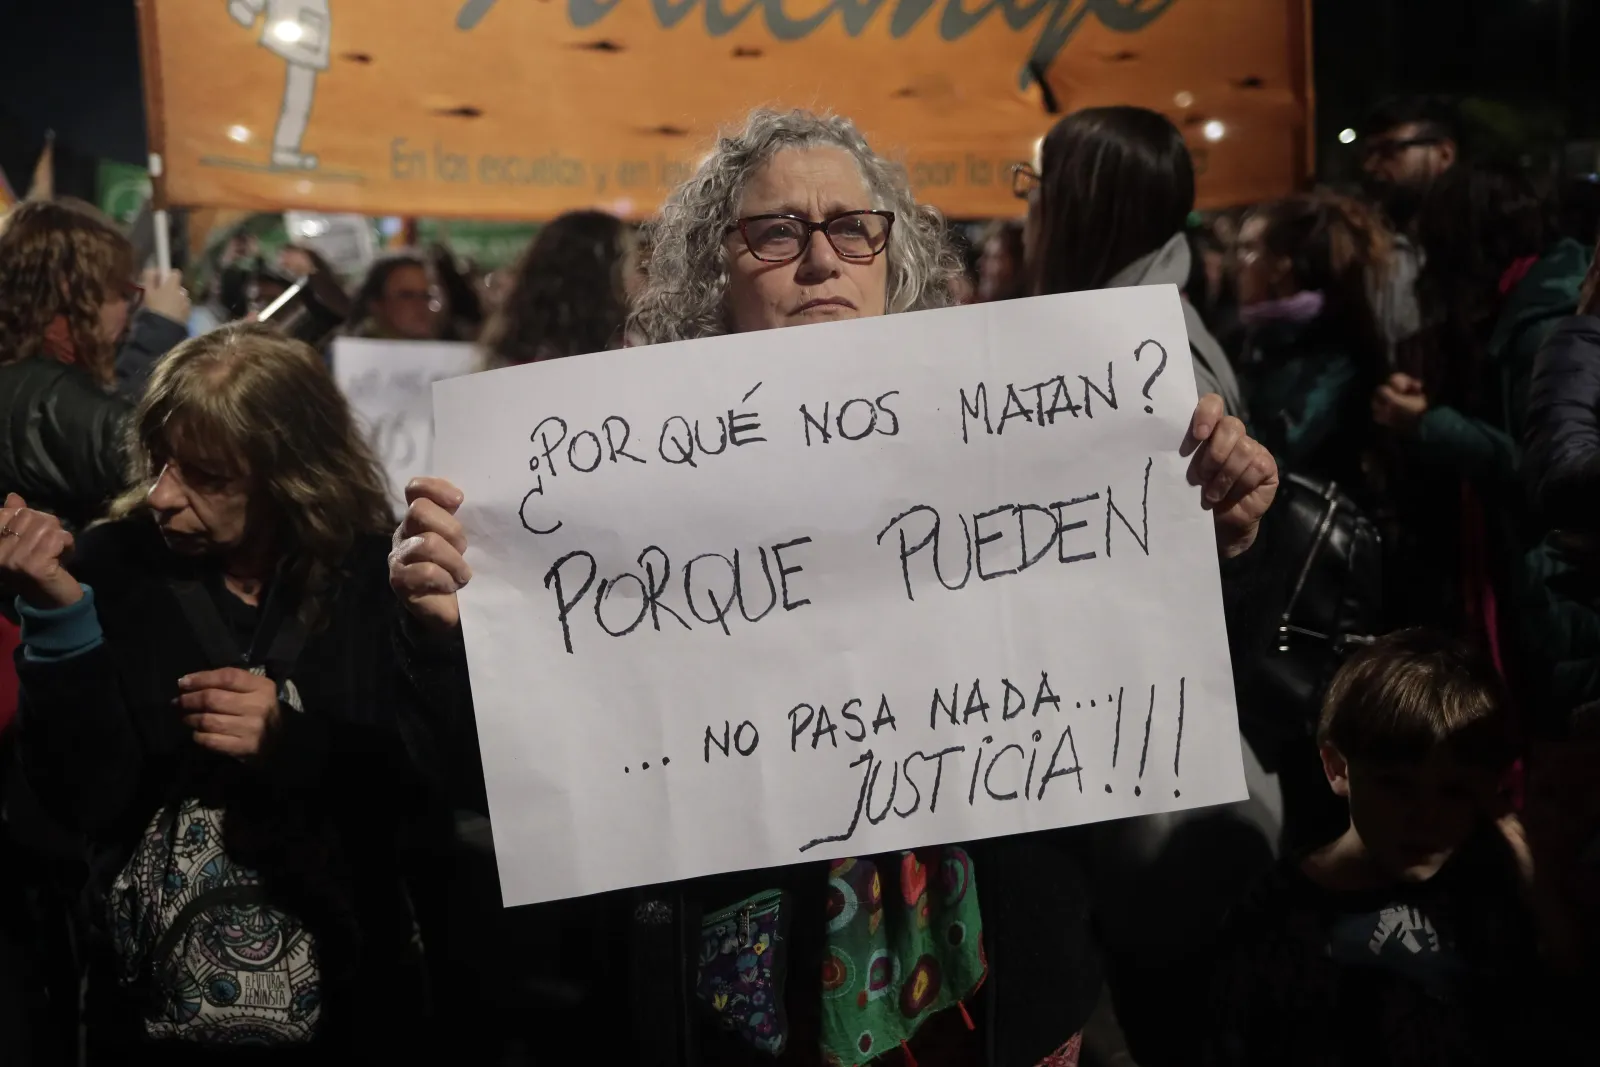 En las escuelas y en
por la
¿PORQUÉ NOS MATAN?
PORQUE PUEDEN
... NO PASA NADA...
JUSTICIA!!!
EL FUTURO ES
FEMINISTA